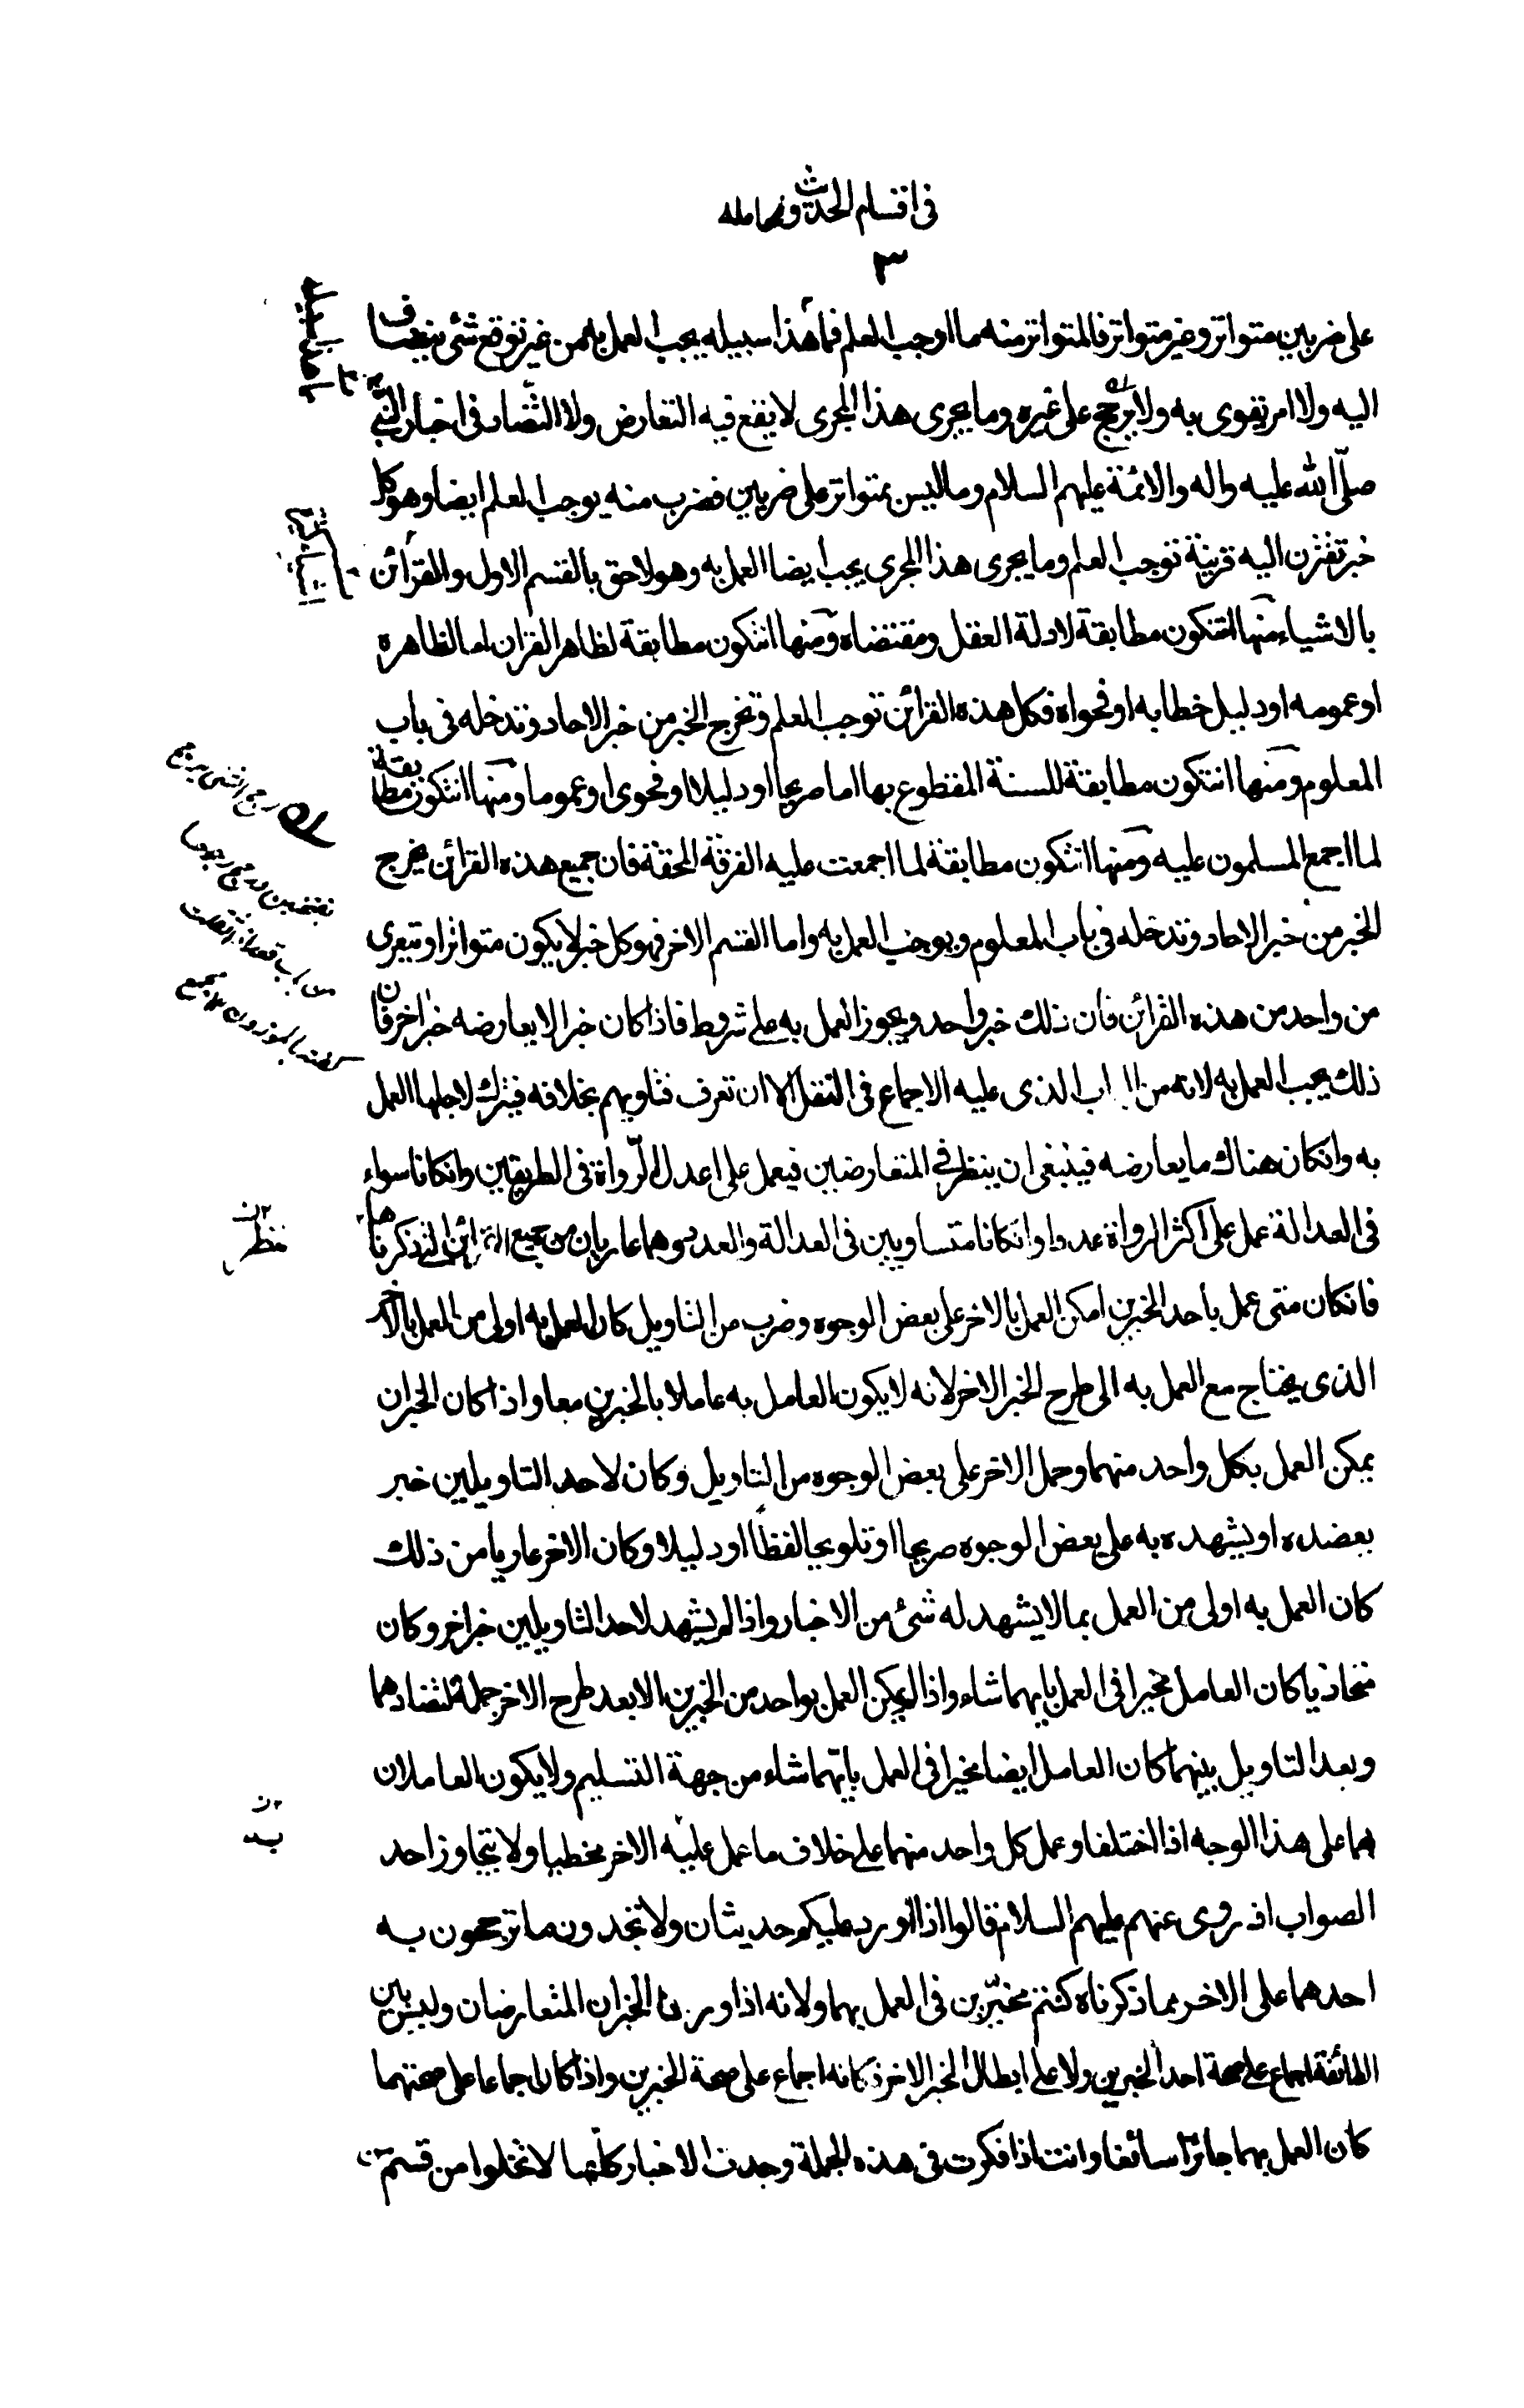 فى اقسام الحديث ومحامله
٣
على ضربين متواتر وغير متواتر فالمتواتر منه ما اوجب العلم فما هذا سبيله يجب العمل به من غير توقع شئ ينضاف
اليه ولا امر يقوى به ولا يرجح على غيره وما يجرى هذا المجرى لا يقع فيه التعارض ولا التضاد فى اخبار النبى
صلّى الله عليه واله والائمة عليهم السلام وما ليس بمتواتر على ضربين فضرب منه يوجب العلم ايضا وهو كل
خبر تقترن اليه قرينة توجب العلم وما يجرى هذا المجرى يجب ايضا العمل به وهو لاحق بالقسم الاول والقرائن
بالاشياء منها ان تكون مطابقة لادلة العقل ومقتضاه ومنها انتكون مطابقة لظاهر القران اما لظاهره
او عمومه او دليل خطابه او فحواه فكل هذه القرائن توجب العلم وتخرج الخبر من خبر الاحاد وتدخله فى باب
المعلوم ومنها انتكون مطابقة للسنة المقطوع بها اما صريحا او دليلا او فحوى او عموما ومنها انتكون مطابقة
لما اجمع المسلمون عليه ومنها انتكون مطابقة لما اجمعت عليه الفرقة المحقة فان جميع هذه القرائن يخرج
الخبر من خبر الاحاد وتدخله فى باب المعلوم ويوجب العمل به واما القسم الاخر فهو كل خبر لا يكون متواترا وتبعرى
من واحد من هذه القرائن فان ذلك خبر واحد ويجوز العمل به على شروط فاذا كان خبر الا يعارضه خبر اخر فان
ذلك يجب العمل به لانه من الباب الذى عليه الاجماع فى النقل الا ان تعرف فتاويهم بخلافه فيترك لاجلها العمل
به وانكان هناك ما يعارضه فينبغى ان ينظر فى المتعارضين فيعمل على اعدل الرّواة فى الطريقين وانكانا سواء
فى العدالة عمل على اكثر الرواة عددا وانكانا متساويين فى العدالة والعدد وهما عاريان من جميع القرائن التى ذكرناها
فانكان متى عمل باحد الخبرين امكن العمل بالاخر على بعض الوجوه وضرب من التاويل كان العمل به اولى من العمل بالاخر
الذى يحتاج مع العمل به الى طرح الخبر الاخر لانه لا يكون العامل به عاملا بالخبرين معا واذا كان الخبران
يمكن العمل بكل واحد منهما وحمل الاخر على بعض الوجوه من التاويل وكان لاحد التاويلين خبر
يعضده او يشهده به على بعض الوجوه صريحا او تلويحا لفظا او دليلا وكان الاخر عاريا من ذلك
كان العمل به اولى من العمل بما لا يشهد له شئ من الاخبار واذا لم يشهد لاحد التاويلين خبر اخر وكان
متحاذيا كان العامل مخيرا فى العمل بايهما شاء واذا لم يمكن العمل بواحد من الخبرين الا بعد طرح الاخر جملة لتضادهما
وبعد التاويل بينهما كان العامل ايضا مخيرا فى العمل بايّهما شاء من جهة التسليم ولا يكون العاملان
بهما على هذا الوجه اذا اختلفا وعمل كل واحد منهما على خلاف ما عمل عليه الاخر مخطيا ولا يتجاوز احد
الصواب اذ روى عنهم عليهم السلام قالوا اذا اورد عليكم حديثان ولا تجدون ما ترجحون به
احدهما على الاخر مما ذكرناه كنتم مخيّرين فى العمل بهما ولانه اذا ورد الخبران المتعارضان وليس بين
الطائفة اجماع على صحة احد الخبرين ولا على ابطال الخبر الاخر فكانه اجماع على صحة الخبرين واذا كان اجماعا على صحتهما
كان العمل بهما جائزا سائغا وانت اذا فكرت فى هذه الجملة وجدت الاخبار كلّها لا تخلوا من قسم من